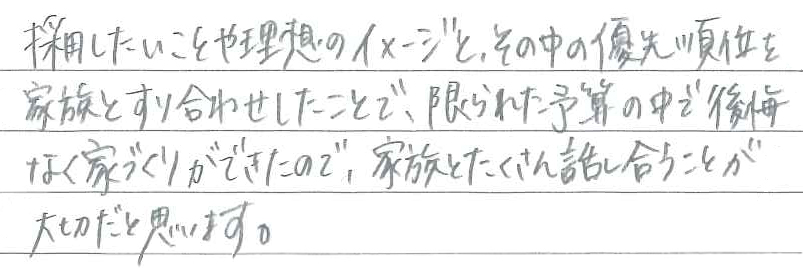 採用したいことや理想のイメージと、その中の優先順位を
家族とすり合わせしたことで、限られた予算の中で後悔
なく家づくりができたので、家族とたくさん話し合うことが
大切だと思います。